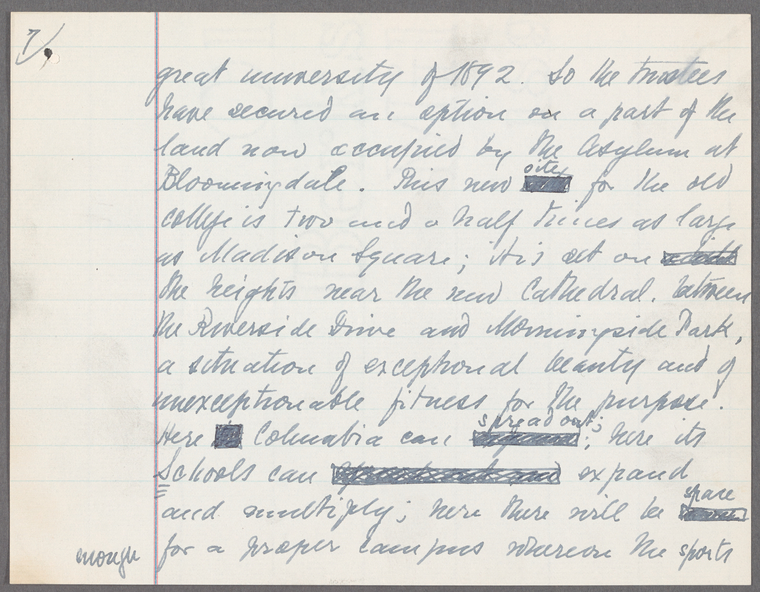 7/
great university of 1892. So the trustees
have secured an option on a part of the
land now occupied by the Asylum at
Bloomingdale. This new site, for the old
college is two and a half times as large
as Madison Square; it is set on
the heights near the new Cathedral, between
the Riverside Drive and Morningside Park,
a situation of exceptional beauty and of
unexceptionable fitness for the purpose.
Here Columbia can spread out; here its
Schools can expand
and multiply; here there will be space
enough for a proper campus whereon the sports